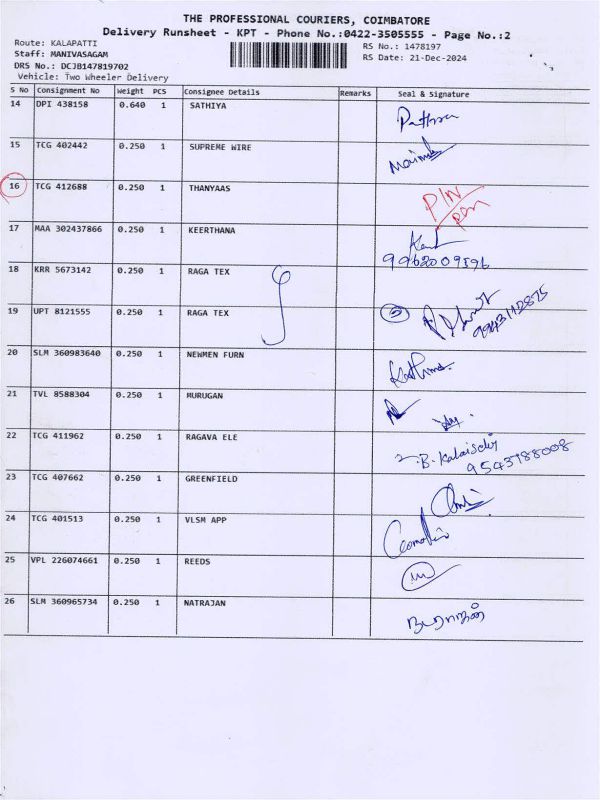 THE PROFESSIONAL COURIERS, COIMBATORE
Delivery Runsheet - KPT - Phone No.:0422-3505555 - Page No.:2
Route: KALAPATTI
RS No.: 1478197
Staff: MANIVASAGAM
RS Date: 21-Dec-2024
DRS No.: DCJB147819702
Vehicle: Two Wheeler Delivery
S No Consignment No Weight PCS Consignee Details Remarks Seal & Signature
14 DPI 438158 0.640 1 SATHIYA
15 TCG 402442 0.250 1 SUPREME WIRE
16 TCG 412688 0.250 1 THANYAAS
17 MAA 302437866 0.250 1 KEERTHANA
9962009596
18 KRR 5673142 0.250 1 RAGA TEX
19 UPT 8121555 0.250 1 RAGA TEX
20 SLM 360983640 0.250 1 NEWMEN FURN
21 TVL 8588304 0.250 1 MURUGAN
22 TCG 411962 0.250 1 RAGAVA ELE B. Kalaiselvi
9543788008
23 TCG 407662 0.250 1 GREENFIELD
24 TCG 401513 0.250 1 VLSM APP
25 VPL 226074661 0.250 1 REEDS
26 SLM 360965734 0.250 1 NATRAJAN நடராஜன்